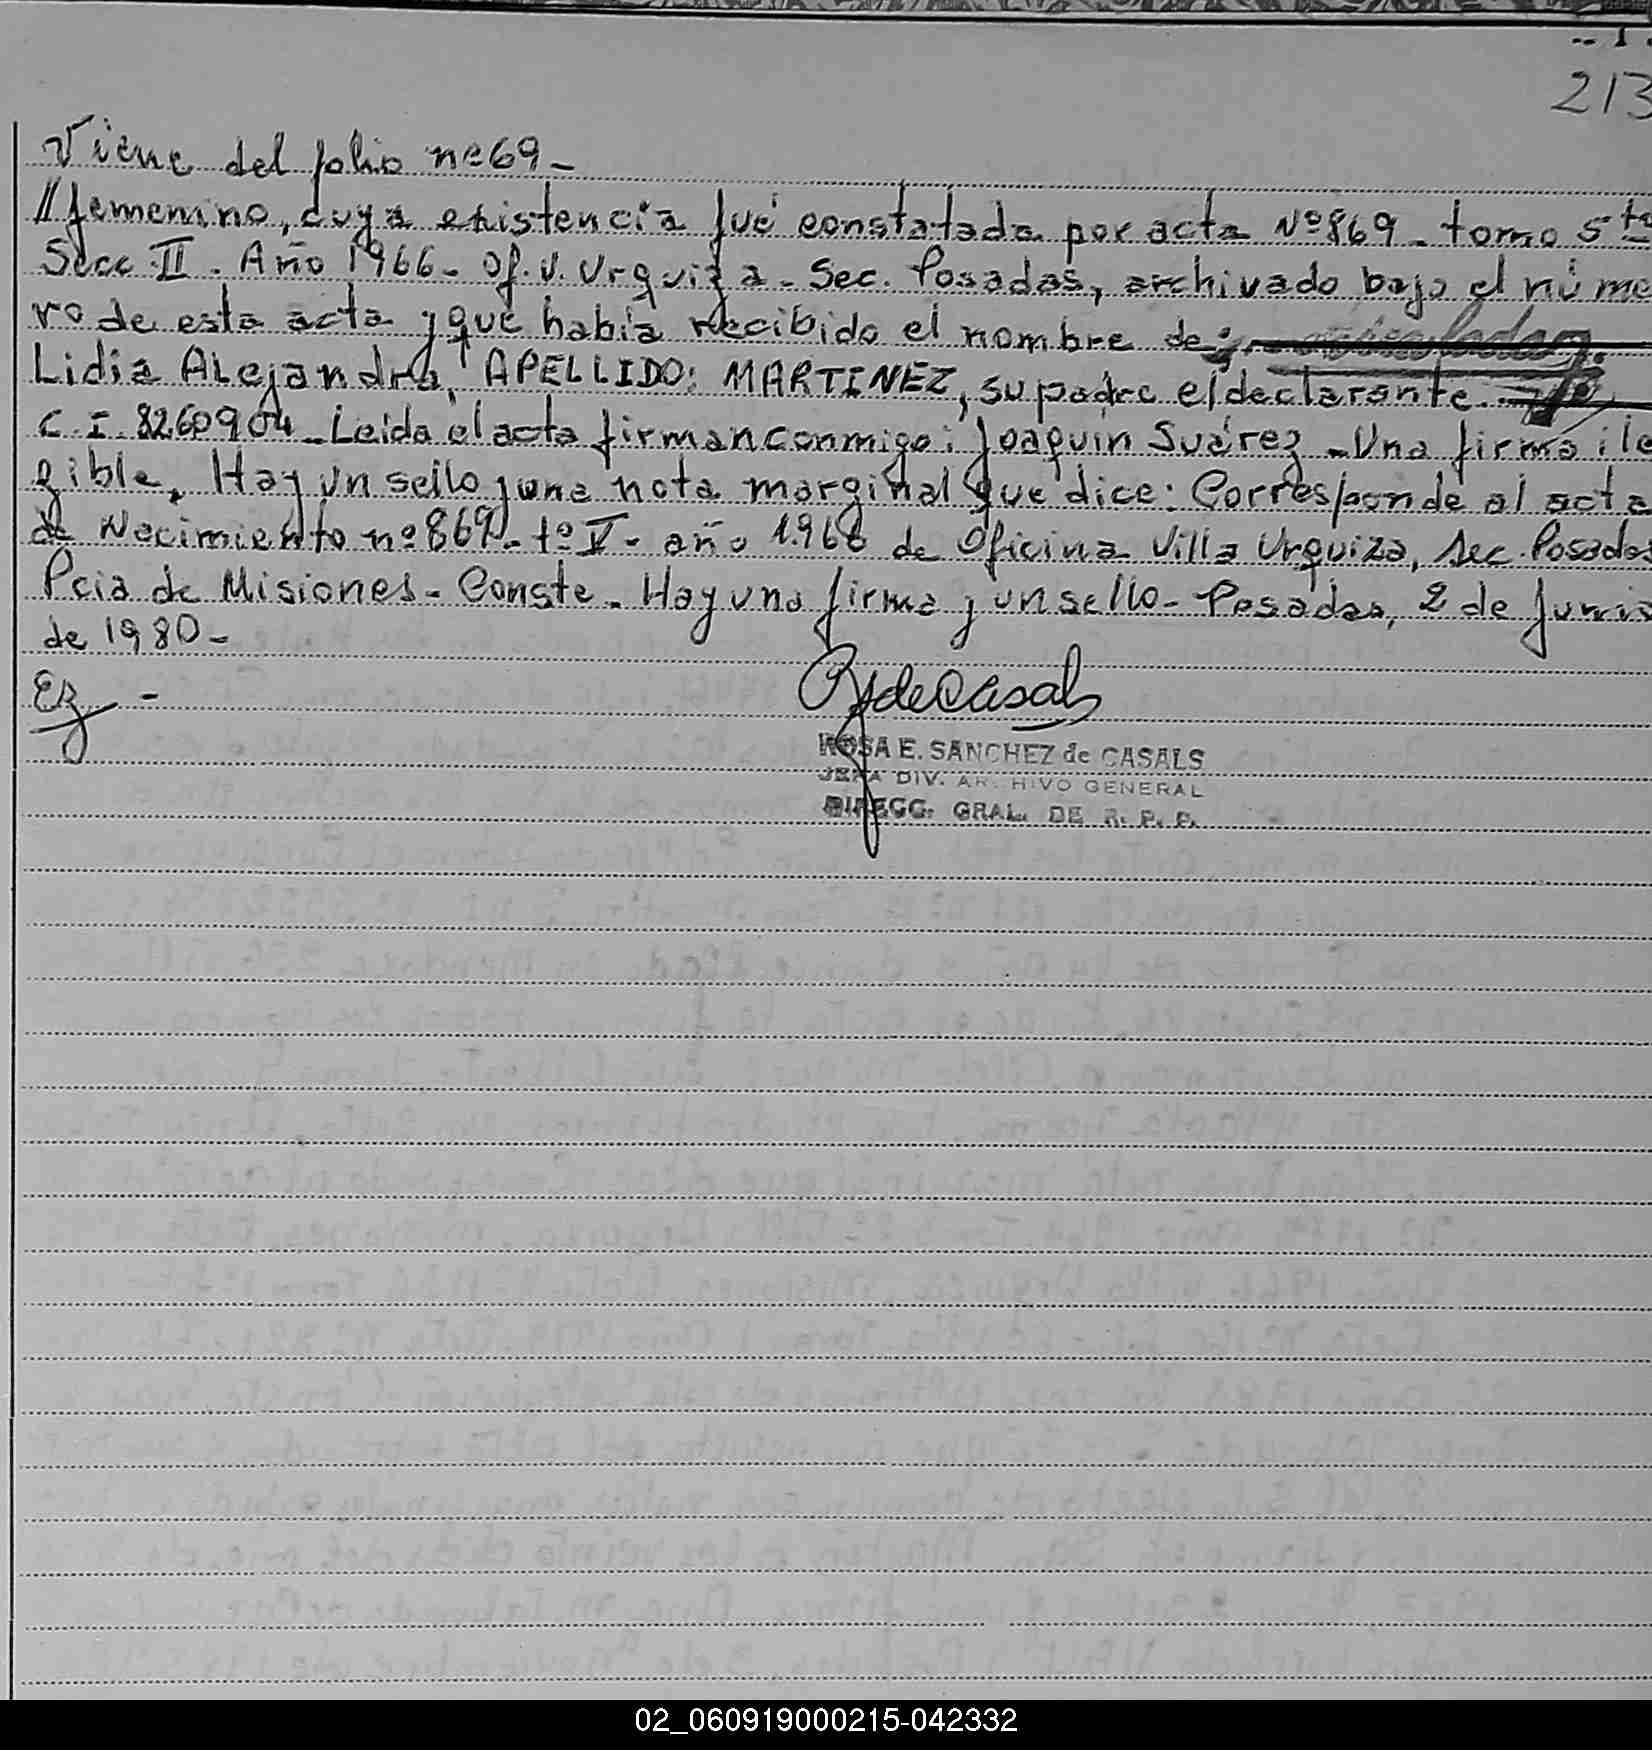 213
Viene del folio nº69-
// femenino, cuya existencia fué constatada por acta Nº869- tomo 5to
Secc. II. Año 1966- Of. V. Urquiza- Sec. Posadas, archivado bajo el núme
ro de esta acta y que había recibido el nombre de
Lidia Alejandra, APELLIDO: MARTINEZ, su padre el declarante.
C.I. 8260904- Leida el acta firman conmigo: Joaquín Suárez- Una firma ile
gible. Hay un sello y una nota marginal que dice: Corresponde al acta
de Nacimiento nº869- tº V- año 1966 de Oficina Villa Urquiza, Sec. Posadas
Pcia de Misiones- Conste- Hay una firma y un sello- Posadas, 2 de Junio
de 1980-
RSdeCasals
ROSA E. SANCHEZ de CASALS
JEFA DIV. ARCHIVO GENERAL
DIRECC. GRAL. DE R. P. P.
02_060919000215-042332